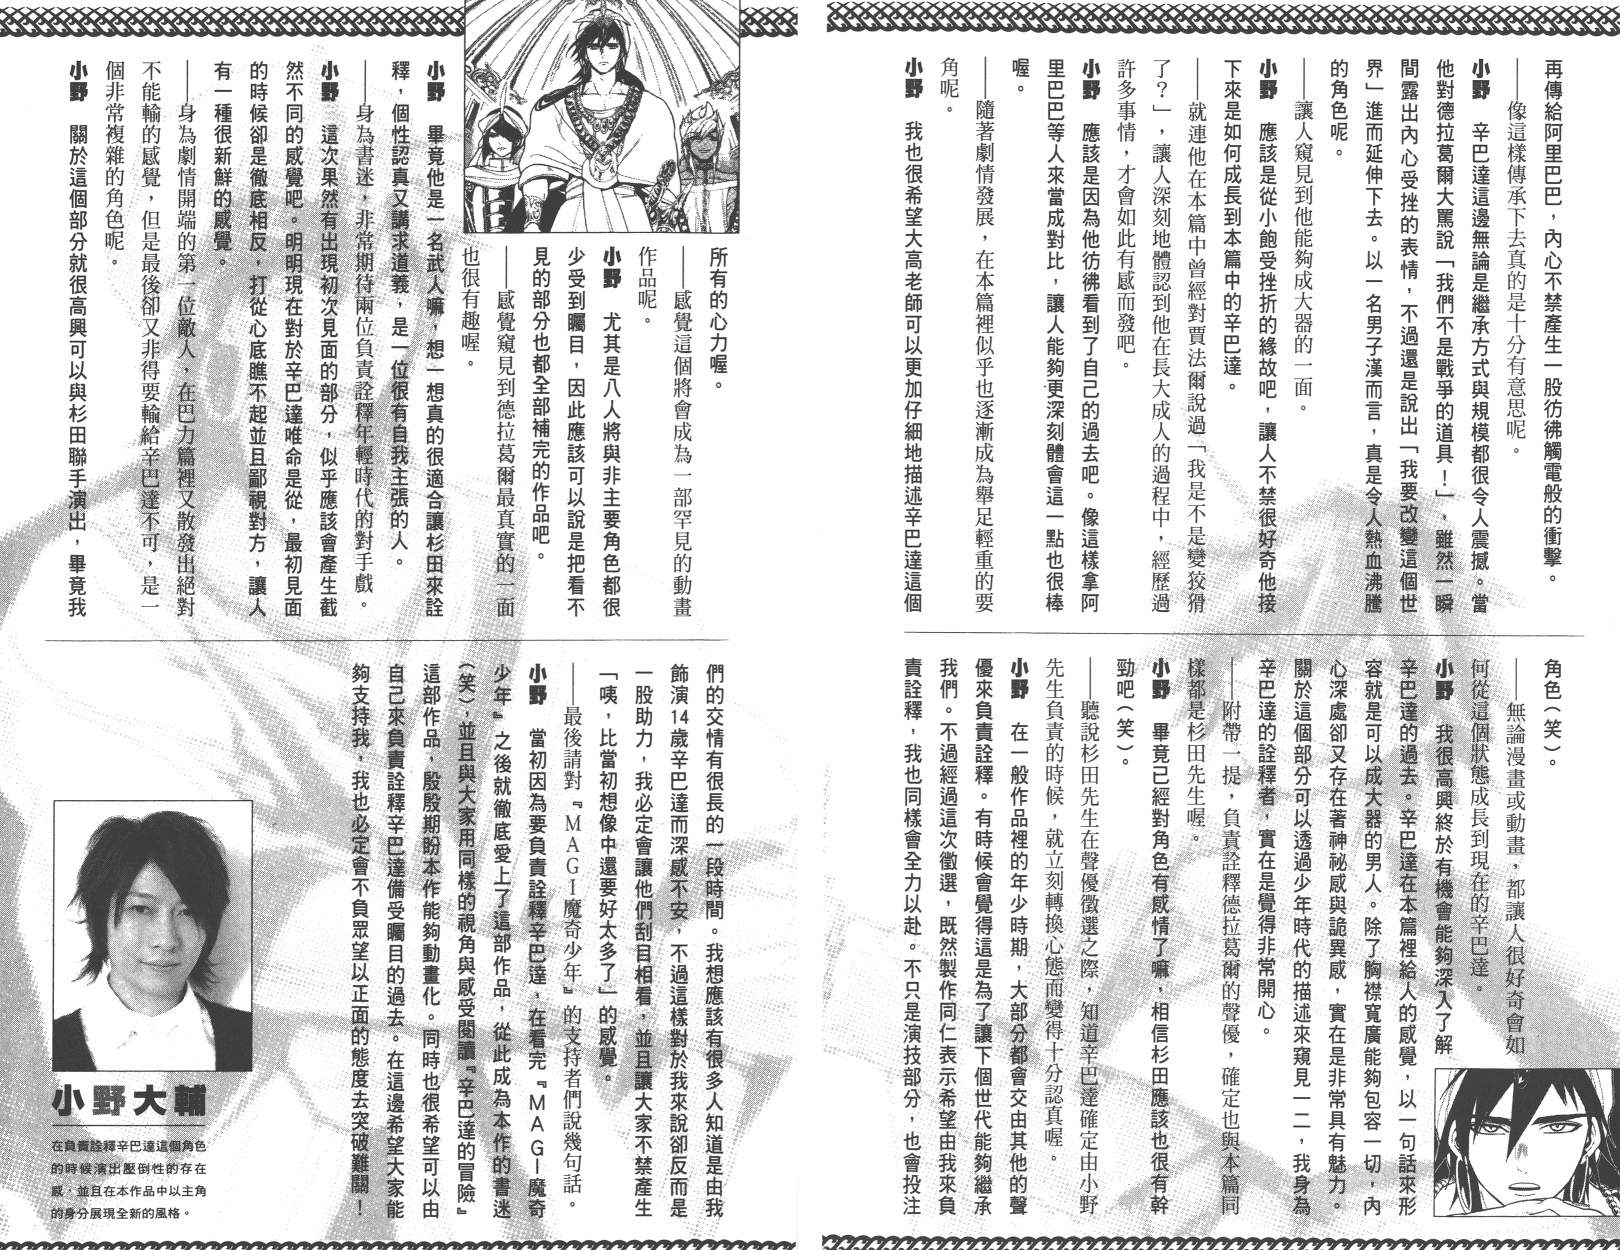 再傳給阿里巴巴，內心不禁產生一股彷彿觸電般的衝擊。
——像這樣傳承下去真的是十分有意思呢。
小野　辛巴達這邊無論是繼承方式與規模都很令人震撼。當
他對德拉葛爾大罵說「我們不是戰爭的道具！」，雖然一瞬
間露出內心受挫的表情，不過還是說出「我要改變這個世
界」進而延伸下去。以一名男子漢而言，真是令人熱血沸騰
的角色呢。
——讓人窺見到他能夠成大器的一面。
小野　應該是從小飽受挫折的緣故吧，讓人不禁很好奇他接
下來是如何成長到本篇中的辛巴達。
——就連他在本篇中曾經對賈法爾說過「我是不是變狡猾
了？」，讓人深刻地體認到他在長大成人的過程中，經歷過
許多事情，才會如此有感而發吧。
小野　應該是因為他彷彿看到了自己的過去吧。像這樣拿阿
里巴巴等人來當成對比，讓人能夠更深刻體會這一點也很棒
喔。
——隨著劇情發展，在本篇裡似乎也逐漸成為舉足輕重的要
角呢。
小野　我也很希望大高老師可以更加仔細地描述辛巴達這個
角色（笑）。
——無論漫畫或動畫，都讓人很好奇會如
何從這個狀態成長到現在的辛巴達。
小野　我很高興終於有機會能夠深入了解
辛巴達的過去。辛巴達在本篇裡給人的感覺，以一句話來形
容就是可以成大器的男人。除了胸襟寬廣能夠包容一切，內
心深處卻又存在著神祕感與詭異感，實在是非常具有魅力。
關於這個部分可以透過少年時代的描述來窺見一二，我身為
辛巴達的詮釋者，實在是覺得非常開心。
——附帶一提，負責詮釋德拉葛爾的聲優，確定也與本篇同
樣都是杉田先生喔。
小野　畢竟已經對角色有感情了嘛，相信杉田應該也很有幹
勁吧（笑）。
——聽說杉田先生在聲優徵選之際，知道辛巴達確定由小野
先生負責的時候，就立刻轉換心態而變得十分認真喔。
小野　在一般作品裡的年少時期，大部分都會交由其他的聲
優來負責詮釋。有時候會覺得這是為了讓下個世代能夠繼承
我們。不過經過這次徵選，既然製作同仁表示希望由我來負
責詮釋，我也同樣會全力以赴。不只是演技部分，也會投注
所有的心力喔。
——感覺這個將會成為一部罕見的動畫
作品呢。
小野　尤其是八人將與非主要角色都很
少受到矚目，因此應該可以說是把看不
見的部分也都全部補完的作品吧。
——感覺窺見到德拉葛爾最真實的一面
也很有趣喔。
小野　畢竟他是一名武人嘛，想一想真的很適合讓杉田來詮
釋，個性認真又講求道義，是一位很有自我主張的人。
——身為書迷，非常期待兩位負責詮釋年輕時代的對手戲。
小野　這次果然有出現初次見面的部分，似乎應該會產生截
然不同的感覺吧。明明現在對於辛巴達唯命是從，最初見面
的時候卻是徹底相反，打從心底瞧不起並且鄙視對方，讓人
有一種很新鮮的感覺。
——身為劇情開端的第一位敵人，在巴力篇裡又散發出絕對
不能輸的感覺，但是最後卻又非得要輸給辛巴達不可，是一
個非常複雜的角色呢。
小野　關於這個部分就很高興可以與杉田聯手演出，畢竟我
們的交情有很長的一段時間。我想應該有很多人知道是由我
飾演14歲辛巴達而深感不安，不過這樣對於我來說卻反而是
一股助力，我必定會讓他們刮目相看，並且讓大家不禁產生
「咦，比當初想像中還要好太多了」的感覺。
——最後請對『MAGI魔奇少年』的支持者們說幾句話。
小野　當初因為要負責詮釋辛巴達，在看完『MAGI魔奇
少年』之後就徹底愛上了這部作品，從此成為本作的書迷
（笑），並且與大家用同樣的視角與感受閱讀『辛巴達的冒險』
這部作品，殷殷期盼本作能夠動畫化。同時也很希望可以由
自己來負責詮釋辛巴達備受矚目的過去。在這邊希望大家能
夠支持我，我也必定會不負眾望以正面的態度去突破難關！
小野大輔
在負責詮釋辛巴達這個角色
的時候演出壓倒性的存在
感，並且在本作品中以主角
的身分展現全新的風格。